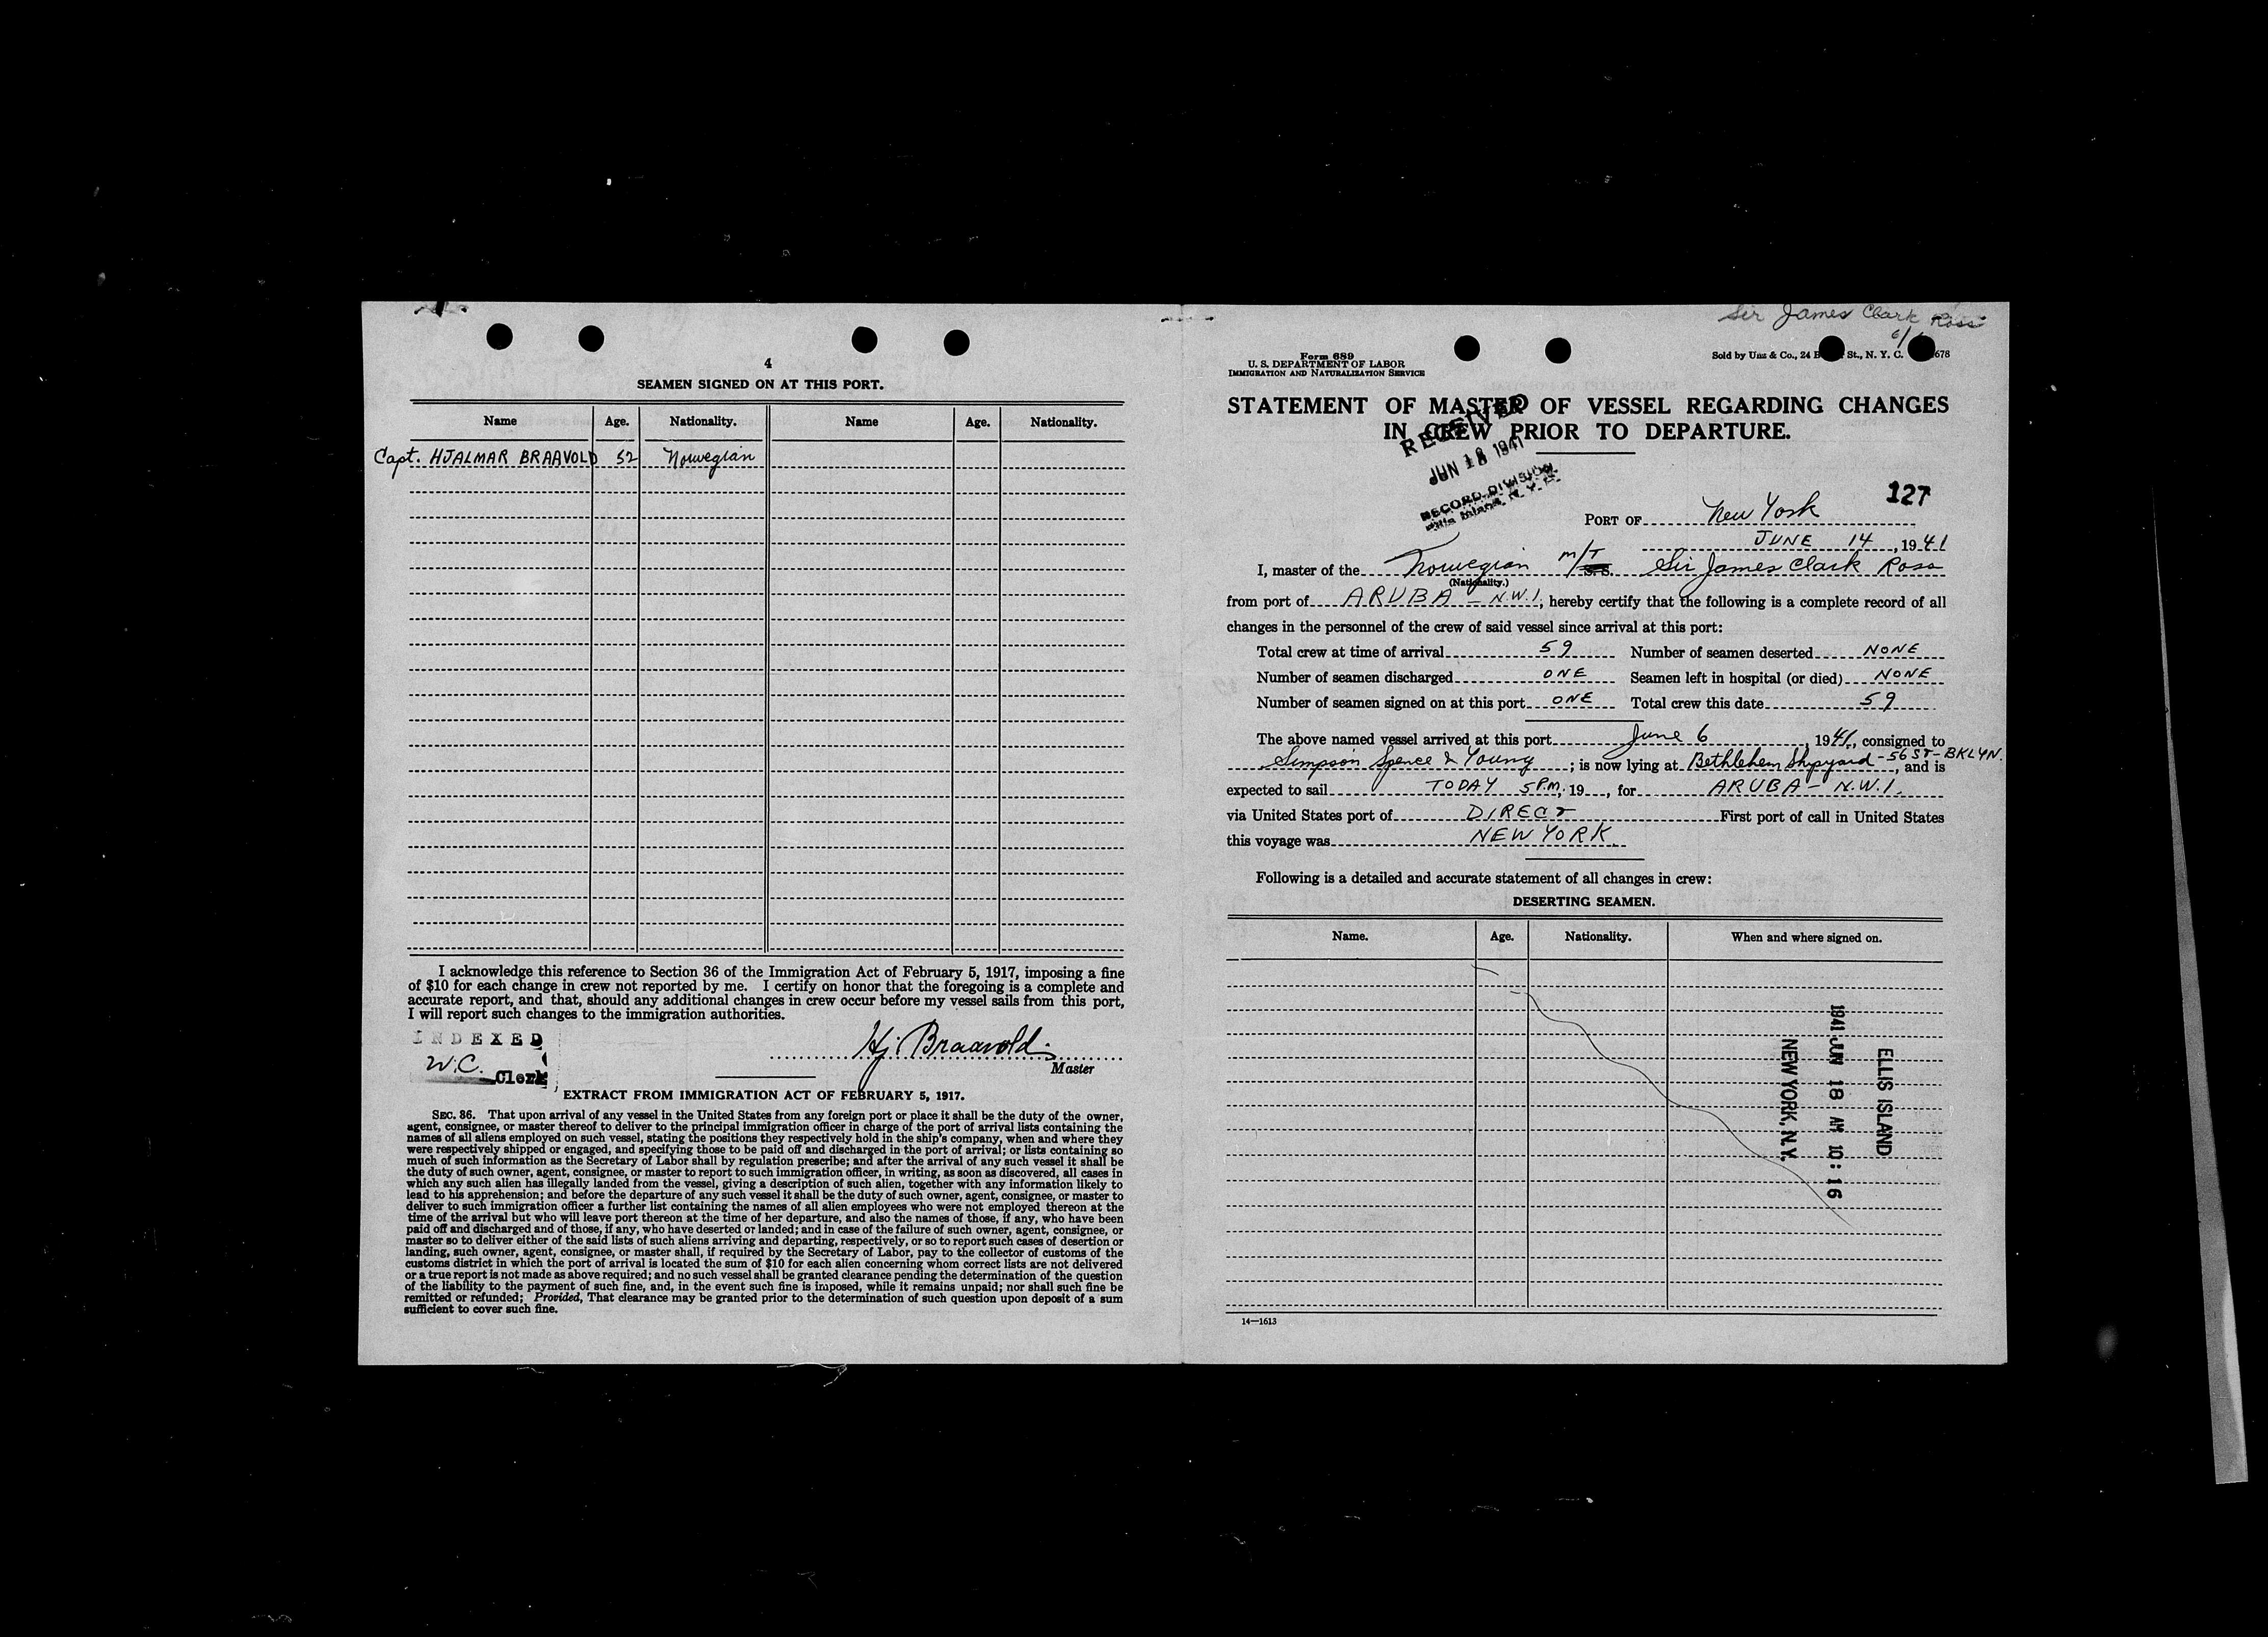 4
SEAMEN SIGNED ON AT THIS PORT.
Name Age. Nationality. Name Age. Nationality.
Capt. HJALMAR BRAAVOLD 52 Norwegian
I acknowledge this reference to Section 36 of the Immigration Act of February 5, 1917, imposing a fine
of $10 for each change in crew not reported by me. I certify on honor that the foregoing is a complete and
accurate report, and that, should any additional changes in crew occur before my vessel sails from this port,
I will report such changes to the immigration authorities.
INDEXED
W.C. Clerk
Hj. Braavold
Master
EXTRACT FROM IMMIGRATION ACT OF FEBRUARY 5, 1917.
SEC. 36. That upon arrival of any vessel in the United States from any foreign port or place it shall be the duty of the owner,
agent, consignee, or master thereof to deliver to the principal immigration officer in charge of the port of arrival lists containing the
names of all aliens employed on such vessel, stating the positions they respectively hold in the ship's company, when and where they
were respectively shipped or engaged, and specifying those to be paid off and discharged in the port of arrival; or lists containing so
much of such information as the Secretary of Labor shall by regulation prescribe; and after the arrival of any such vessel it shall be
the duty of such owner, agent, consignee, or master to report to such immigration officer, in writing, as soon as discovered, all cases in
which any such alien has illegally landed from the vessel, giving a description of such alien, together with any information likely to
lead to his apprehension; and before the departure of any such vessel it shall be the duty of such owner, agent, consignee, or master to
deliver to such immigration officer a further list containing the names of all alien employees who were not employed thereon at the
time of the arrival but who will leave port thereon at the time of her departure, and also the names of those, if any, who have been
paid off and discharged and of those, if any, who have deserted or landed; and in case of the failure of such owner, agent, consignee, or
master so to deliver either of the said lists of such aliens arriving and departing, respectively, or so to report such cases of desertion or
landing, such owner, agent, consignee, or master shall, if required by the Secretary of Labor, pay to the collector of customs of the
customs district in which the port of arrival is located the sum of $10 for each alien concerning whom correct lists are not delivered
or a true report is not made as above required; and no such vessel shall be granted clearance pending the determination of the question
of the liability to the payment of such fine, and, in the event such fine is imposed, while it remains unpaid; nor shall such fine be
remitted or refunded; Provided, That clearance may be granted prior to the determination of such question upon deposit of a sum
sufficient to cover such fine.
Sir James Clark Ross
6/
Form 689
U. S. DEPARTMENT OF LABOR
IMMIGRATION AND NATURALIZATION SERVICE
Sold by Unz & Co., 24 B St., N. Y. C. 678
STATEMENT OF MASTER OF VESSEL REGARDING CHANGES
IN CREW PRIOR TO DEPARTURE.
RECEIVED
JUN 18 1941
RECORD DIVISION
Ellis Island, N. Y. H.
127
PORT OF New York
JUNE 14, 1941
I, master of the Norwegian M/T S. S. Sir James Clark Ross
(Nationality.)
from port of ARUBA - N.W.I., hereby certify that the following is a complete record of all
changes in the personnel of the crew of said vessel since arrival at this port:
Total crew at time of arrival 59 Number of seamen deserted NONE
Number of seamen discharged ONE Seamen left in hospital (or died) NONE
Number of seamen signed on at this port ONE Total crew this date 59
The above named vessel arrived at this port June 6, 1941, consigned to
Simpson Spence & Young; is now lying at Bethlehem Shipyard - 56 ST - BKLYN., and is
expected to sail TODAY 5 P.M., 19 , for ARUBA - N.W.I.
via United States port of DIRECT First port of call in United States
this voyage was NEW YORK.
Following is a detailed and accurate statement of all changes in crew:
DESERTING SEAMEN.
Name. Age. Nationality. When and where signed on.
ELLIS ISLAND
1941 JUN 18 AM 10:16
NEW YORK, N.Y.
14—1613